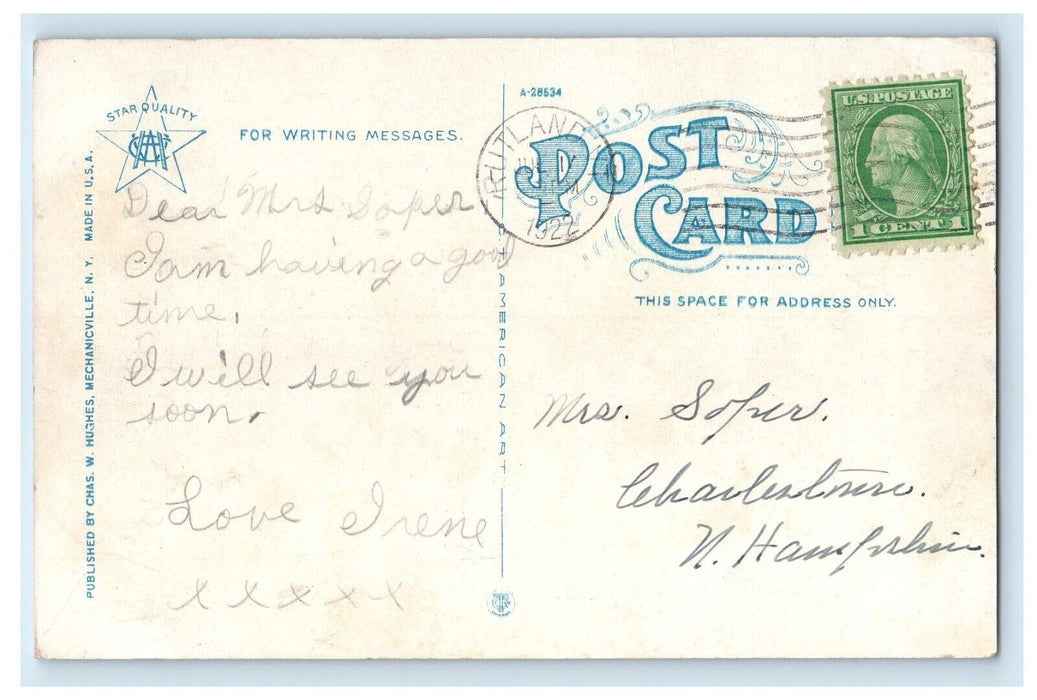 STAR QUALITY
FOR WRITING MESSAGES.
Dear Mrs Soper
I am having a good
time.
I will see you
soon.
Love Irene
x x x x x
PUBLISHED BY CHAS. W. HUGHES, MECHANICVILLE, N. Y. MADE IN U.S.A.
C. T. AMERICAN ART
A-28534
RUTLAND
1922
POST
CARD
U.S. POSTAGE
1 CENT 1
THIS SPACE FOR ADDRESS ONLY.
Mrs. Soper.
Charlestown.
N. Hampshire.